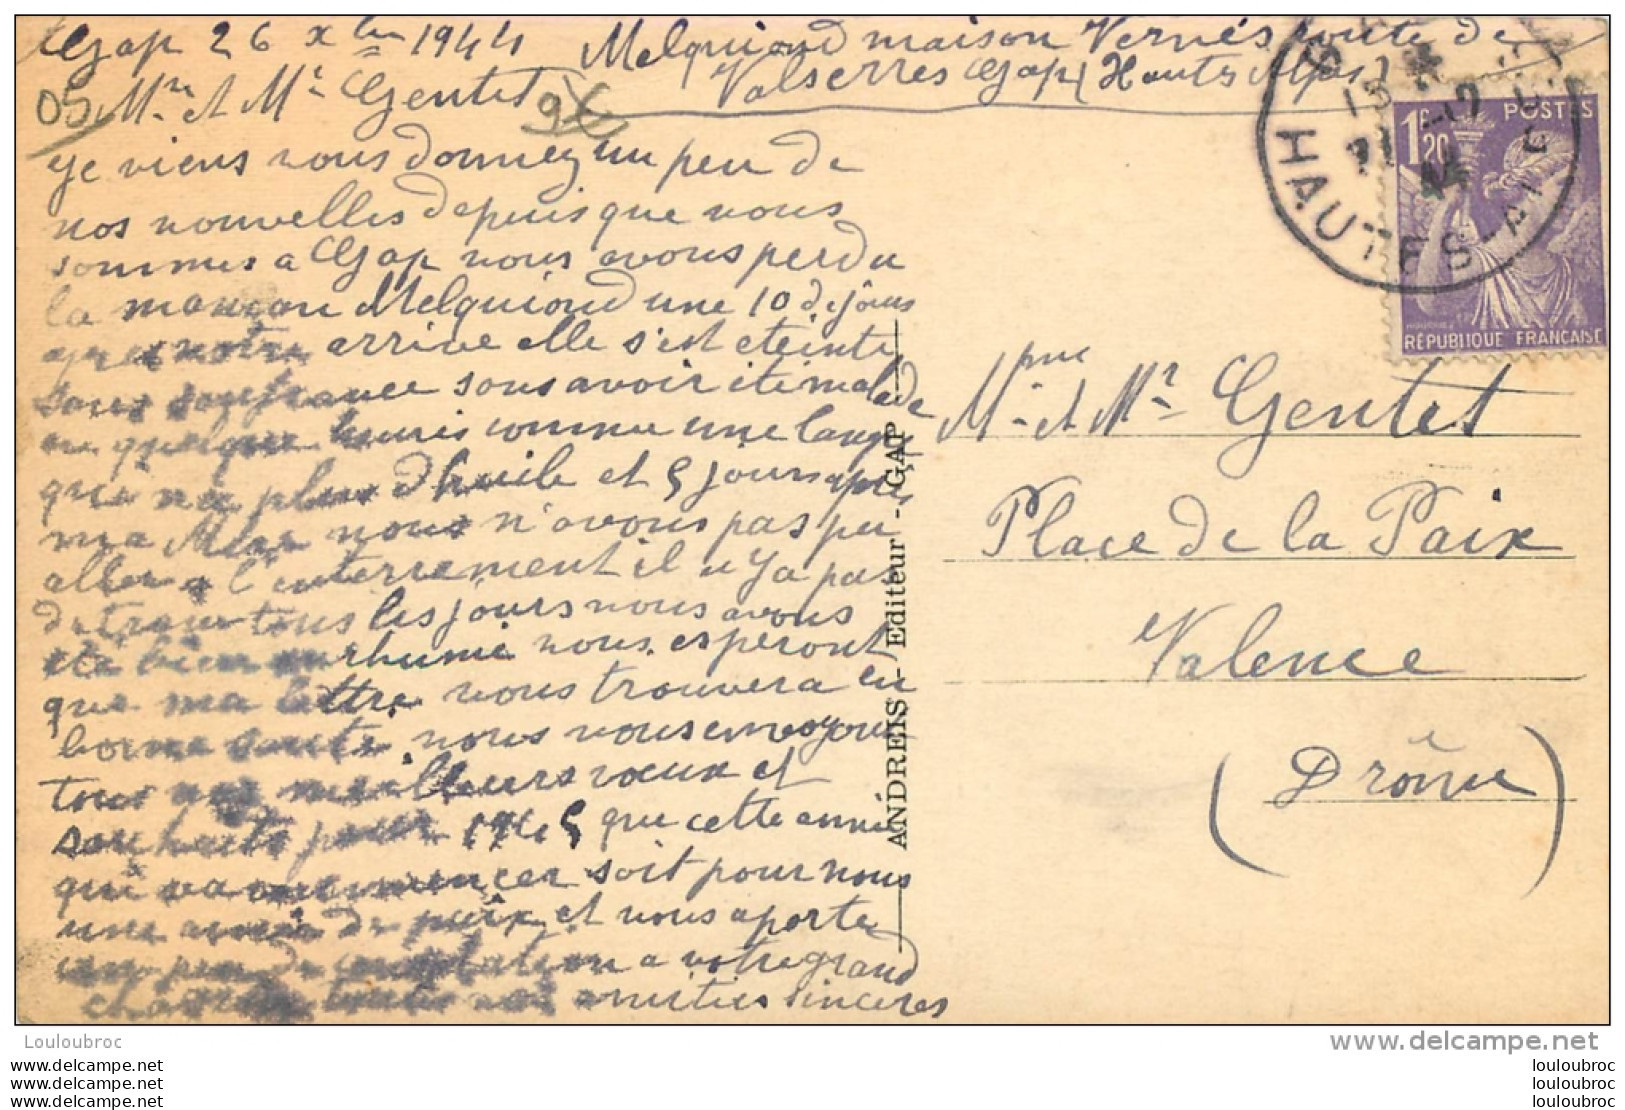 Gap 26 xbre 1944 Melquiond maison Vernès route de
Valserres Gap (Hautes Alpes)
05 Mme et Mr Gentet
je viens vous donnez un peu de
nos nouvelles depuis que nous
sommes a Gap nous avons perdu
la maman Melquiond une 10 de jours
apres notre arrive elle s'est eteinte
sans souffrance sans avoir ete malade
en quelque heures comme une lampe
qui na plus d'huile et 5 jours après
ma nous n'avons pas pu
aller a l'enterrement il n'y a pas
de train tous les jours nous avons
été bien enrhumé nous esperont
que ma lettre vous trouvera en
bonne sante nous vous envoyons
tous nos meilleurs vœux et
souhaits pour 1945 que cette année
qui va commencer soit pour nous
une année de paix et vous aporte
un peu de consolation a votre grand
chagrin toutes nos amitiés sinceres
ANDREIS - Editeur - GAP
HAUTES-ALPES
1F20
POSTES
RÉPUBLIQUE FRANÇAISE
Mme et Mr Gentet
Place de la Paix
Valence
(Drôme)
Louloubroc
www.delcampe.net
louloubroc
louloubroc
louloubroc
louloubroc
louloubroc
louloubroc